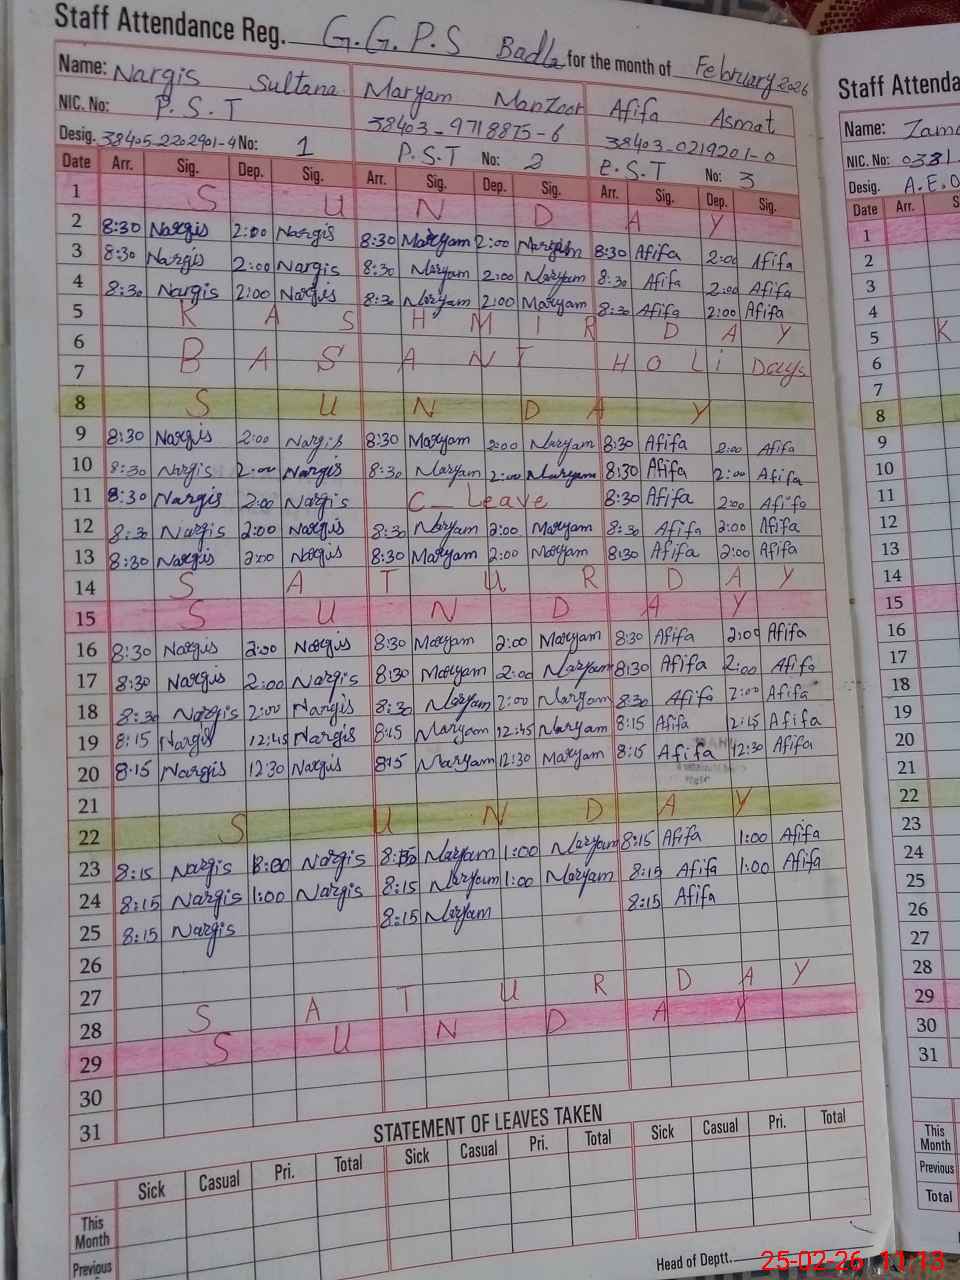 Staff Attendance Reg. G.G.P.S Badla for the month of February 2026
Name: Nargis Sultana Maryam Manzoor Afifa Asmat
NIC. No: P.S.T 38403-9718875-6 38403-0219201-0
Desig. 38405-2202901-4 No: 1 P.S.T No: 2 P.S.T No: 3
Date Arr. Sig. Dep. Sig. Arr. Sig. Dep. Sig. Arr. Sig. Dep. Sig.
1 S U N D A Y
2 8:30 Nargis 2:00 Nargis 8:30 Maryam 2:00 8:30 Afifa 2:00 Afifa
3 8:30 Nargis 2:00 Nargis 8:30 Maryam 2:00 Maryam 8:30 Afifa 2:00 Afifa
4 8:30 Nargis 2:00 Nargis 8:30 Maryam 2:00 Maryam 8:30 Afifa 2:00 Afifa
5 K A S H M I R D A Y
6 B A S A N T H O L i Days
7
8 S U N D A Y
9 8:30 Nargis 2:00 Nargis 8:30 Maryam 2:00 Maryam 8:30 Afifa 2:00 Afifa
10 8:30 Nargis 2:00 Nargis 8:30 Maryam 2:00 Maryam 8:30 Afifa 2:00 Afifa
11 8:30 Nargis 2:00 Nargis C_ Leave 8:30 Afifa 2:00 Afifa
12 8:30 Nargis 2:00 Nargis 8:30 Maryam 2:00 Maryam 8:30 Afifa 2:00 Afifa
13 8:30 Nargis 2:00 Nargis 8:30 Maryam 2:00 Maryam 8:30 Afifa 2:00 Afifa
14 S A T U R D A Y
15 S U N D A Y
16 8:30 Nargis 2:00 Nargis 8:30 Maryam 2:00 Maryam 8:30 Afifa 2:00 Afifa
17 8:30 Nargis 2:00 Nargis 8:30 Maryam 2:00 Maryam 8:30 Afifa 2:00 Afifa
18 8:30 Nargis 2:00 Nargis 8:30 Maryam 2:00 Maryam 8:30 Afifa 2:00 Afifa
19 8:15 Nargis 12:45 Nargis 8:15 Maryam 12:45 Maryam 8:15 Afifa Afifa
20 8:15 Nargis 12:30 Nargis 8:15 Maryam 12:30 Maryam 8:15 Afifa 12:30 Afifa
21
22 S U N D A Y
23 8:15 Nargis Nargis 8:15 Maryam 1:00 Maryam 8:15 Afifa 1:00 Afifa
24 8:15 Nargis 1:00 Nargis 8:15 Maryam 1:00 Maryam 8:15 Afifa 1:00 Afifa
25 8:15 Nargis 8:15 Maryam 8:15 Afifa
26
27
28 S A T U R D A Y
29 S U N D A Y
30
31
STATEMENT OF LEAVES TAKEN
Sick Casual Pri. Total Sick Casual Pri. Total Sick Casual Pri. Total
This Month
Previous
Head of Deptt.
25-02-26 11:13
Staff Attenda
Name:
NIC. No: 0331
Desig. A.E.O
Date Arr. S
1
2
3
4
5 K
6
7
8
9
10
11
12
13
14
15
16
17
18
19
20
21
22
23
24
25
26
27
28
29
30
31
This Month
Previous
Total